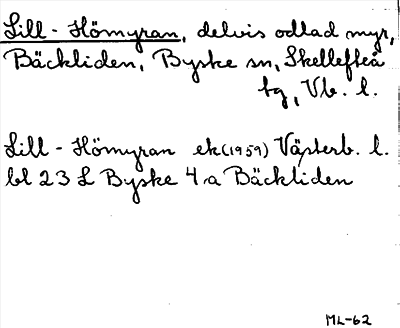 Lill-Hömyran, delvis odlad myr,
Bäckliden, Byske sn, Skellefteå
tg, Vb. l.
Lill-Hömyran ek(1959) Västerb. l.
bl 23 L Byske 4a Bäckliden
ML-62